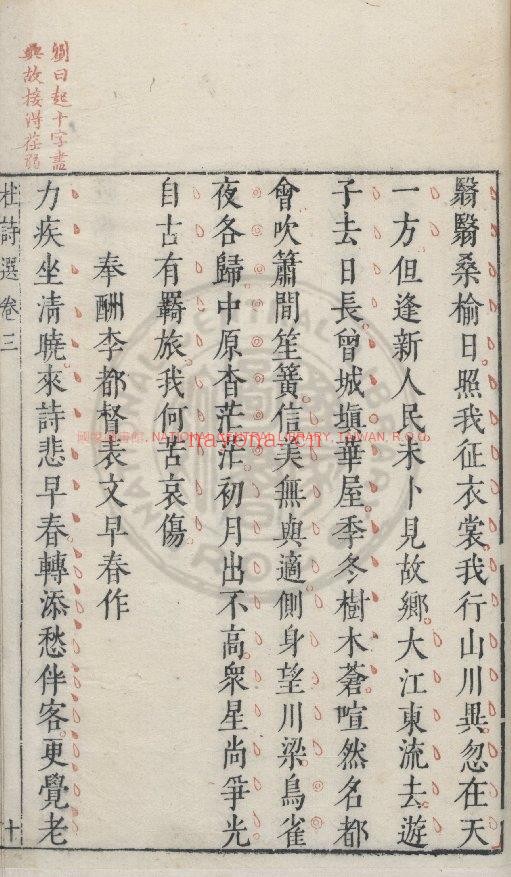 劉曰起十字盡
與故接得荏弱
翳翳桑榆日照我征衣裳我行山川異忽在天
一方但逢新人民未卜見故鄉大江東流去遊
子去日長曾城塡華屋季冬樹木蒼喧然名都
會吹簫間笙簧信美無與適側身望川梁鳥雀
夜各歸中原杳茫茫初月出不高衆星尚爭光
自古有羇旅我何苦哀傷
奉酬李都督表文早春作
力疾坐淸曉來詩悲早春轉添愁伴客更覺老
杜詩選卷三
十
國家圖書館, NATIONAL CENTRAL LIBRARY, TAIWAN, R.O.C.